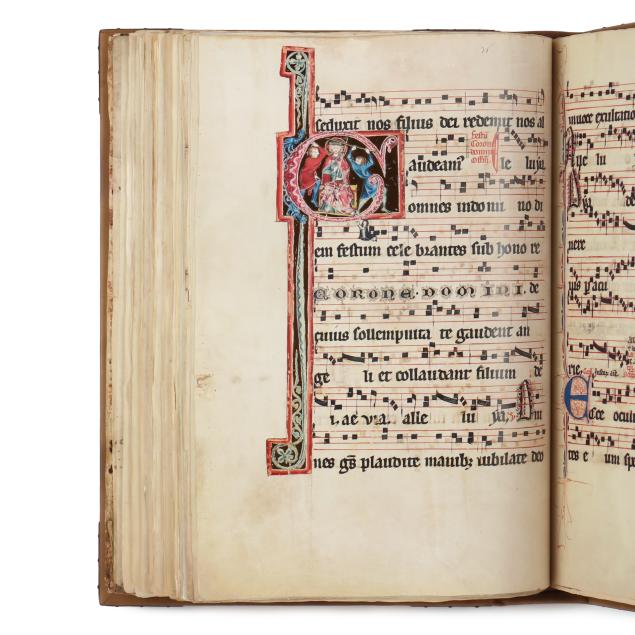 seduxit nos filius dei redemit nos al
festū
Corone
domini
offm̄
Gaudeam⁹ le luya
omnes in domi no di
em festum cele brantes sub hono re
CORONE DOMINI. de
cuius sollempnita te gaudent an
ge li et collaudant filium de
i. ae via. alle lu ya. Om
nes gēs plaudite manibȝ iubilate deo
muere exultatio
lu
de
nere
rie.
Ecce ocul